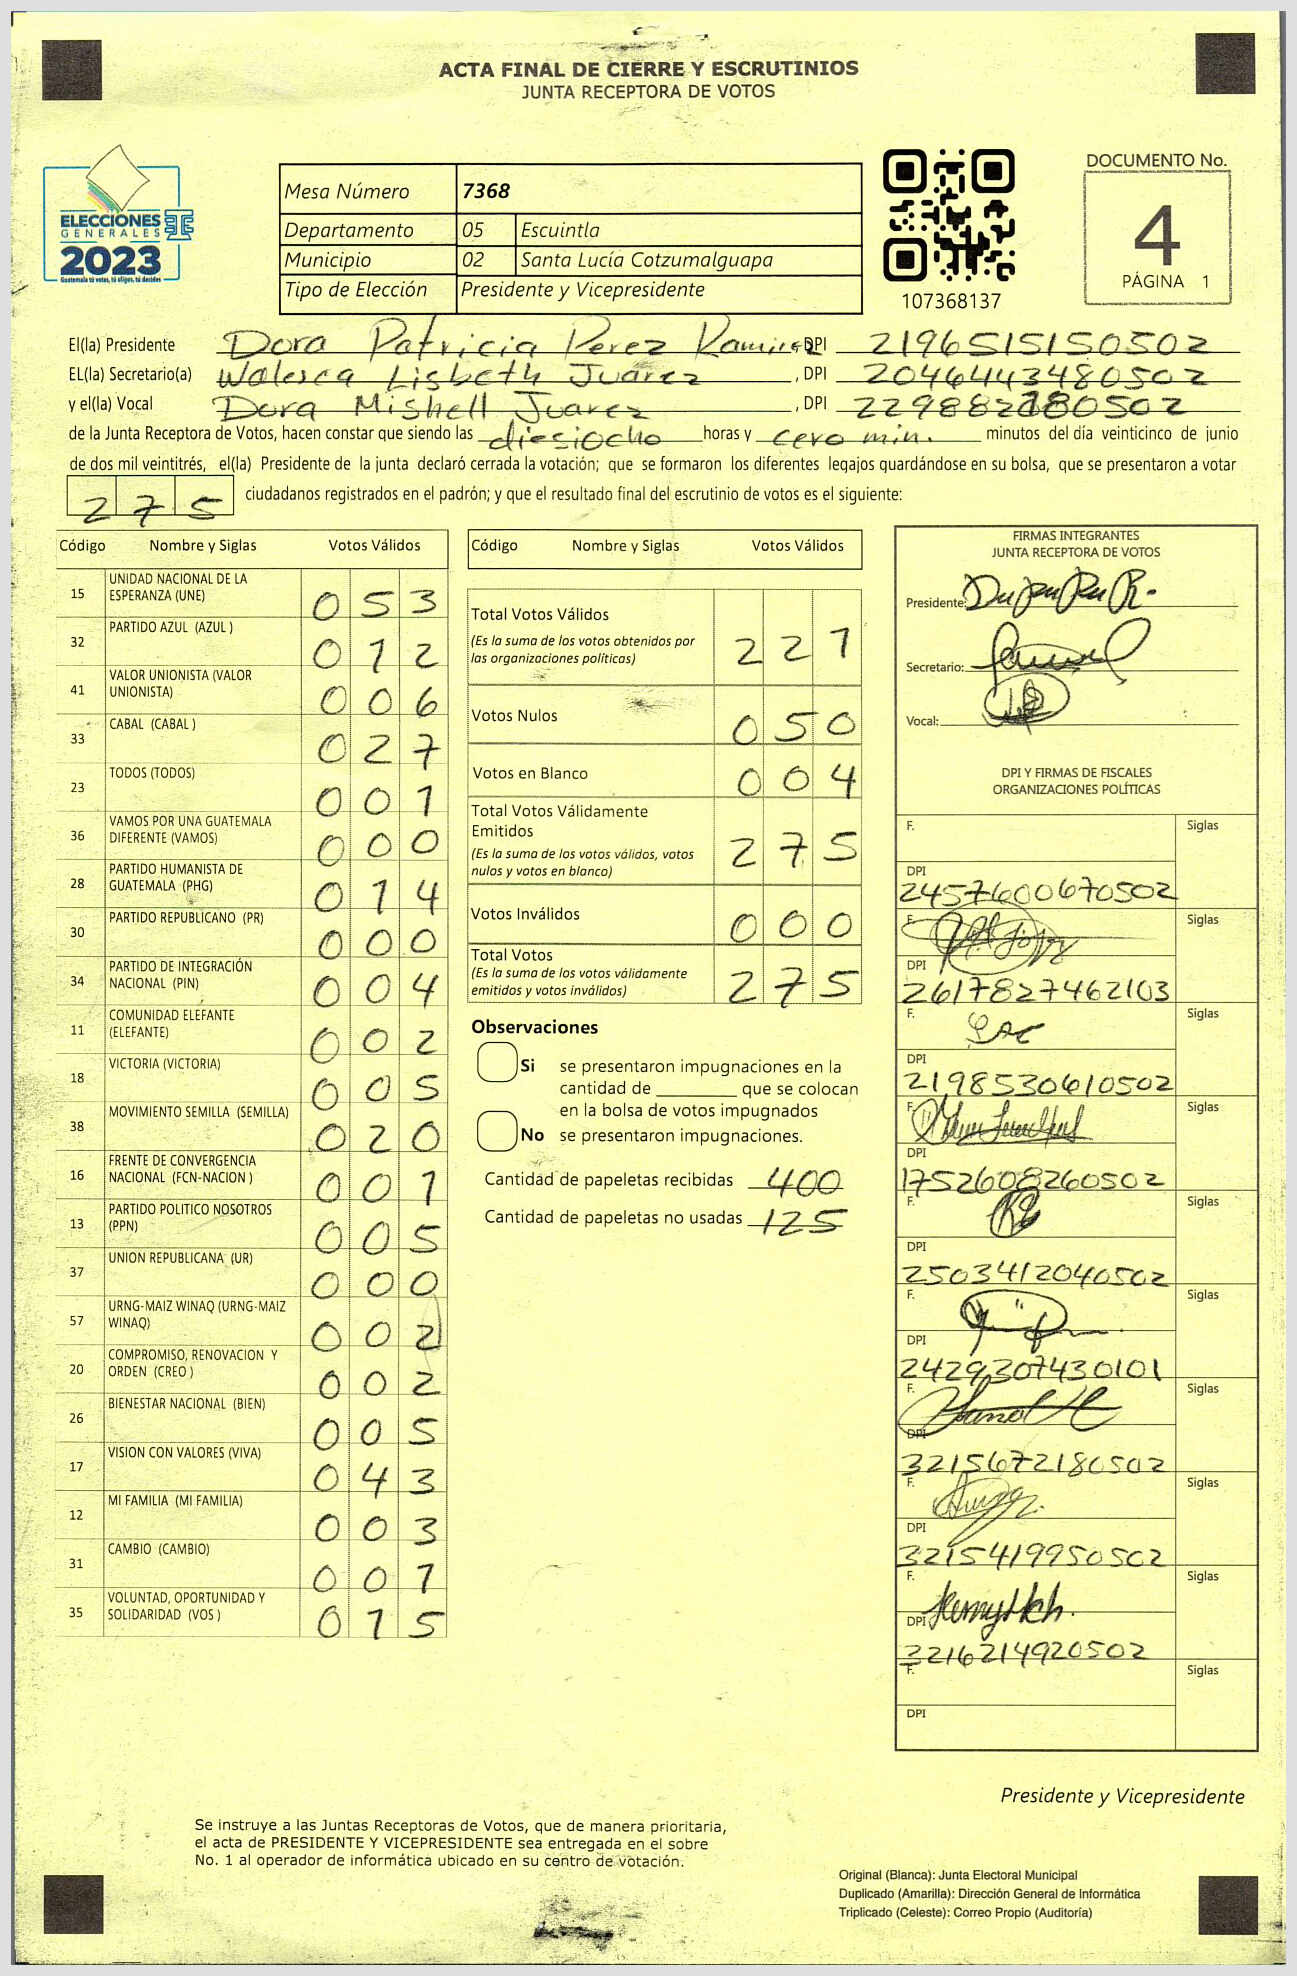 ACTA FINAL DE CIERRE Y ESCRUTINIOS
JUNTA RECEPTORA DE VOTOS
ELECCIONES
GENERALES
2023
Guatemala tú votas, tú eliges, tú decides
Mesa Número 7368
Departamento 05 Escuintla
Municipio 02 Santa Lucía Cotzumalguapa
Tipo de Elección Presidente y Vicepresidente
107368137
DOCUMENTO No.
4
PÁGINA 1
El(la) Presidente Dora Patricia Perez Ramirez DPI 2196515150502
EL(la) Secretario(a) Walesca Lisbeth Juárez , DPI 2046443480502
y el(la) Vocal Dora Mishell Juarez , DPI
de la Junta Receptora de Votos, hacen constar que siendo las diesiocho horas y cero min. minutos del día veinticinco de junio
de dos mil veintitrés, el(la) Presidente de la junta declaró cerrada la votación; que se formaron los diferentes legajos quardándose en su bolsa, que se presentaron a votar
275 ciudadanos registrados en el padrón; y que el resultado final del escrutinio de votos es el siguiente:
Código Nombre y Siglas Votos Válidos
15 UNIDAD NACIONAL DE LA ESPERANZA (UNE) 053
32 PARTIDO AZUL (AZUL ) 012
41 VALOR UNIONISTA (VALOR UNIONISTA) 006
33 CABAL (CABAL ) 027
23 TODOS (TODOS) 001
36 VAMOS POR UNA GUATEMALA DIFERENTE (VAMOS) 000
28 PARTIDO HUMANISTA DE GUATEMALA (PHG) 014
30 PARTIDO REPUBLICANO (PR) 000
34 PARTIDO DE INTEGRACIÓN NACIONAL (PIN) 004
11 COMUNIDAD ELEFANTE (ELEFANTE) 002
18 VICTORIA (VICTORIA) 005
38 MOVIMIENTO SEMILLA (SEMILLA) 020
16 FRENTE DE CONVERGENCIA NACIONAL (FCN-NACION ) 001
13 PARTIDO POLITICO NOSOTROS (PPN) 005
37 UNION REPUBLICANA (UR) 000
57 URNG-MAIZ WINAQ (URNG-MAIZ WINAQ) 002
20 COMPROMISO, RENOVACION Y ORDEN (CREO ) 002
26 BIENESTAR NACIONAL (BIEN) 005
17 VISION CON VALORES (VIVA) 043
12 MI FAMILIA (MI FAMILIA) 003
31 CAMBIO (CAMBIO) 001
35 VOLUNTAD, OPORTUNIDAD Y SOLIDARIDAD (VOS ) 015
Código Nombre y Siglas Votos Válidos
Total Votos Válidos 221
(Es la suma de los votos obtenidos por
las organizaciones políticas)
Votos Nulos 050
Votos en Blanco 004
Total Votos Válidamente
Emitidos 275
(Es la suma de los votos válidos, votos
nulos y votos en blanco)
Votos Inválidos 000
Total Votos 275
(Es la suma de los votos válidamente
emitidos y votos inválidos)
Observaciones
Si se presentaron impugnaciones en la
cantidad de ________ que se colocan
en la bolsa de votos impugnados
No se presentaron impugnaciones.
Cantidad de papeletas recibidas 400
Cantidad de papeletas no usadas 125
FIRMAS INTEGRANTES
JUNTA RECEPTORA DE VOTOS
Presidente:
Secretario:
Vocal:
DPI Y FIRMAS DE FISCALES
ORGANIZACIONES POLÍTICAS
F. Siglas
DPI
2457600670502
F. Siglas
DPI
2617827462103
F. Siglas
DPI
2198530610502
F. Siglas
DPI
1752608260502
F. Siglas
DPI
2503412040502
F. Siglas
DPI
2429307430101
F. Siglas
DPI
3215672180502
F. Siglas
DPI
3215419950502
F. Siglas
DPI
3216214920502
F. Siglas
DPI
Presidente y Vicepresidente
Se instruye a las Juntas Receptoras de Votos, que de manera prioritaria,
el acta de PRESIDENTE Y VICEPRESIDENTE sea entregada en el sobre
No. 1 al operador de informática ubicado en su centro de votación.
Original (Blanca): Junta Electoral Municipal
Duplicado (Amarilla): Dirección General de Informática
Triplicado (Celeste): Correo Propio (Auditoría)